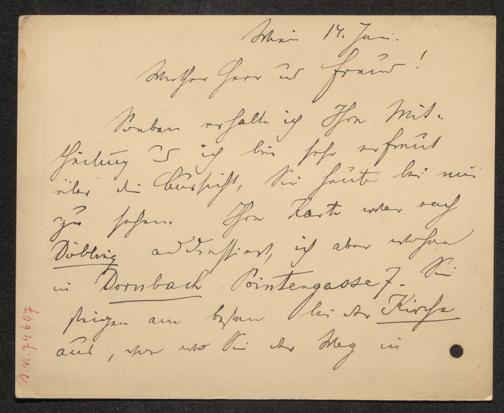 Wien 14. Juni.
Werther Herr und Freund!
Soeben erhalte ich Ihre Mit-
theilung u ich bin sehr erfreut
über die Aussicht, Sie heute bei mir
zu sehen. Ihre Karte war nach
Döbling addressiert, ich aber wohne
in Dornbach Pointengasse 7. Sie
steigen am besten bei der Kirche
aus, von wo Sie der Weg in
I.N. 74607